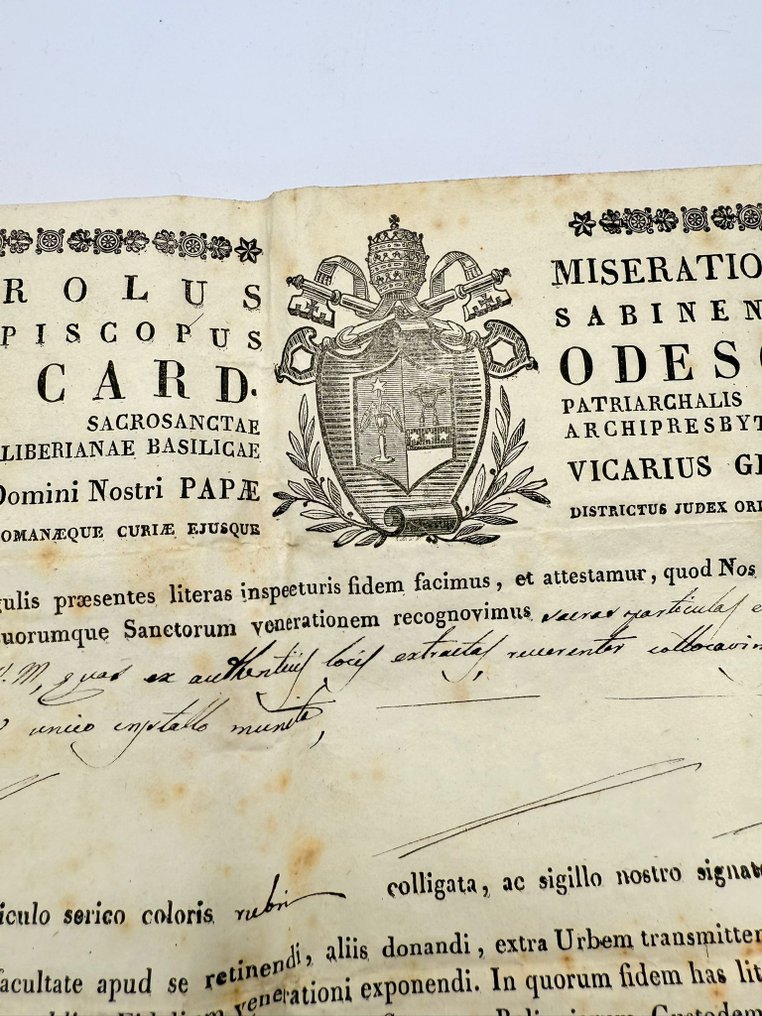 ROLUS
MISERATIO
PISCOPUS
SABINEN
CARD.
ODESC
SACROSANCTAE
PATRIARCHALIS
LIBERIANAE BASILICAE
ARCHIPRESBYT
Domini Nostri PAPÆ
VICARIUS GE
OMANÆQUE CURIÆ EJUSQUE
DISTRICTUS JUDEX ORD
gulis præsentes literas inspecturis fidem facimus, et attestamur, quod Nos
uorumque Sanctorum venerationem recognovimus sacras particulas e
V. M, quas ex authenticis locis extractas, reverenter collocavim
unico crystallo munita,
iculo serico coloris rubri colligata, ac sigillo nostro signat
facultate apud se retinendi, aliis donandi, extra Urbem transmitten
venerationi exponendi. In quorum fidem has lit
Custodem